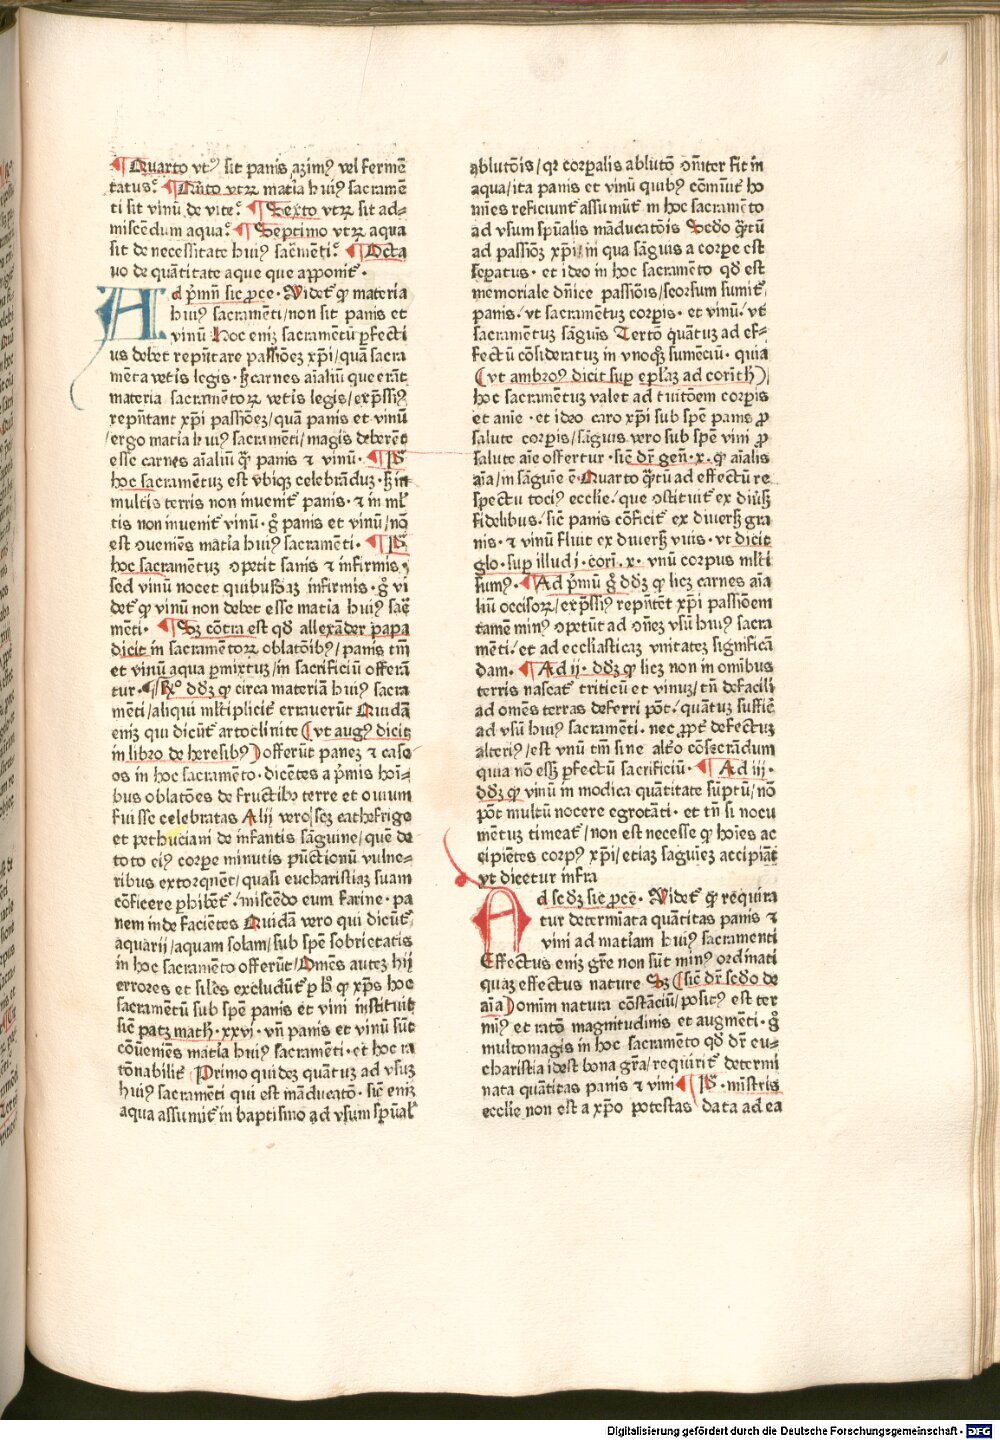 Quarto vtꝝ sit panis azimꝰ vel fermē
tatus. Quīto vtꝝ mat̄ia huiꝰ sacramē
ti sit vinū de vite. Sexto vtꝝ sit ad-
miscendum aqua. Septimo vtꝝ aqua
sit de necessitate huiꝰ sac̄menti. Octa
uo de quātitate aque que apponit̄.
Ad p̄mū sic ꝓce. Videt̄ ꝙ materia
huiꝰ sacramēti/non sit panis et
vinū Hoc eniꝫ sacramētū ꝑfecti
us debet rep̄ntare passiōeꝫ xp̄i/quā sacra
mēta vet̄is legis. sꝫ carnes aīaliū que erāt
materia sacramētoꝝ vet̄is legis/exp̄ssiꝰ
rep̄ntant xp̄i passiōeꝫ/quā panis et vinū
/ergo mat̄ia huiꝰ sacramēti/magis deberēt
esse carnes aīaliū ꝙ̄ panis ⁊ vinū. Pꝰ
hoc sacramētuꝫ est vbiqꝫ celebrāduꝫ. sꝫ in
multis terris non inuenit̄ panis. ⁊ in ml̄
tis non inuenit̄ vinū. gͦ panis et vinū/nō
est ꝯueniēs māt̄ia huiꝰ sacramēti. Pꝰ
hoc sacramētuꝫ ꝯpetit sanis ⁊ infirmis,
sed vinū nocet quibusdaꝫ infirmis. gͦ vi
det̄ ꝙ vinū non debet esse mat̄ia huiꝰ sac̄
mēti. Sꝫ cōtra est qd̄ allexāder papa
dicit in sacramētoꝝ oblatōibꝰ/panis tm̄
et vinū aqua ꝑmixtuꝫ/in sacrificiū offerā
tur. Rͦ dd̄ꝫ ꝙ circa materiā huiꝰ sacra
mēti/aliqui ml̄tiplicit̄ errauerūt Quidā
eniꝫ qui dicūt̄ artoclinite (vt augꝰ dicit
in libro de heresibꝰ) offerūt paneꝫ ⁊ case
os in hoc sacramēto. dicētes a p̄mis hoī-
bus oblatōes de fructibꝰ terre et ouium
fuisse celebratas Alij vero/scꝫ cathefrige
et pethuciani de infantis sāguine/quē de
toto eiꝰ corꝑe minutis pūctionū vulne-
ribus extorquēt/quasi eucharistiaꝫ suam
cōficere ꝑhibēt̄. miscēdo eum farine. pa
nem inde faciētes Quidā vero qui dicūt̄
aquarij/aquam solam/sub spē sobrietatis
in hoc sacramēto offerūt/Omēs auteꝫ hij
errores et siłes excludūt̄ ꝑ h̄ ꝙ xp̄s hoc
sacramētū sub spē panis et vini instituit
sic̄ patꝫ math. xxvi. vn̄ panis et vinū sūt
cōueniēs māt̄ia huiꝰ sacramēti. et hoc ra
tōnabilit̄ Primo quideꝫ quātuꝫ ad vsuꝫ
huiꝰ sacramēti qui est māducatō. sic̄ eniꝫ
aqua assumit̄ in baptismo ad vsum sp̄uał
ablutōis/qꝛ corꝑalis ablutō ꝯīter fit in
aqua/ita panis et vinū quibꝰ cōmūit̄ ho
mīes reficiunt̄ assumūt̄ in hoc sacramēto
ad vsum sp̄ualis māducatōis Secdo ꝙ̄tū
ad passiōꝫ xp̄i/in qua sāguis a corꝑe est
seꝑatus. et ideo in hoc sacramēto qd̄ est
memoriale dn̄ice passiōis/seorsum sumit̄
panis. vt sacramētuꝫ corꝑis. et vinū. vt
sacramētuꝫ sāguis Tertō quātuꝫ ad ef-
fectū cōsideratuꝫ in vnoqꝫ sumēciū. quia
(vt ambroꝰ dicit suꝑ epłaꝫ ad corith)/
hoc sacramētuꝫ valet ad tuitōem corꝑis
et anīe. et ideo caro xp̄i sub spē panis ꝓ
salute corꝑis/sāguis vero sub spē vini ꝓ
salute aīe offertur. sic̄ dr̄ gen̄. x. ꝙ aīalis
aīa/in sāguīe ē. Quarto ꝙ̄tū ad effectū re
spectu tociꝰ ecclīe. que ꝯstituit̄ ex diūsꝭ
fidelibus. sic̄ panis cōficit̄ ex diuersꝭ gra
nis. ⁊ vinū fluit ex diuersꝭ vuis. vt dicit
glo. suꝑ illud j. cori. x. vnū corpus ml̄ti
sumꝰ. Ad p̄mū gͦ dd̄ꝫ ꝙ licꝫ carnes aīa
liū occisoꝝ/exp̄ssiꝰ rep̄ntēt xp̄i passiōem
tamē minꝰ ꝯpetūt ad ꝯn̄eꝫ vsū huiꝰ sacra
mēti. et ad ecclīasticaꝫ vnitateꝫ significā
dam. Ad ij. dd̄ꝫ ꝙ licꝫ non in omībus
terris nascat̄ triticū et vinuꝫ/tn̄ defacili
ad omēs terras deferri pōt. quātuꝫ suffic̄
ad vsū huiꝰ sacramēti. nec ꝓpt̄ defectuꝫ
alteriꝰ/est vnū tm̄ sine alt̄o cōsecrādum
quia nō esꝫ ꝑfectū sacrificiū. Ad iij.
dd̄ꝫ ꝙ vinū in modica quātitate sūptū/nō
pōt multū nocere egrotāti. et tn̄ si nocu
mētuꝫ timeat̄/non est necesse ꝙ hoīes ac
cipiētes corpꝰ xp̄i/etiaꝫ sāguīeꝫ accipiāt
vt dicetur infra
Ad sedꝫ sic ꝓce. Videt̄ ꝙ requira
tur determīata quātitas panis ⁊
vini ad mat̄iam huiꝰ sacramenti
Effectus eniꝫ gr̄e non sūt minꝰ ordinati
quaꝫ effectus nature Sꝫ (sic̄ dr̄ secdo de
aīa) omīm natura cōstāciū/positꝰ est ter
minꝰ et ratō magnitudinis et augmēti. gͦ
multomagis in hoc sacramēto qd̄ dr̄ eu-
charistia idest bona gr̄a/requirit̄ determi
nata quātitas panis ⁊ vini Pꝰ. ministris
ecclīe non est a xp̄o potestas data ad ea
Digitalisierung gefördert durch die Deutsche Forschungsgemeinschaft - DFG